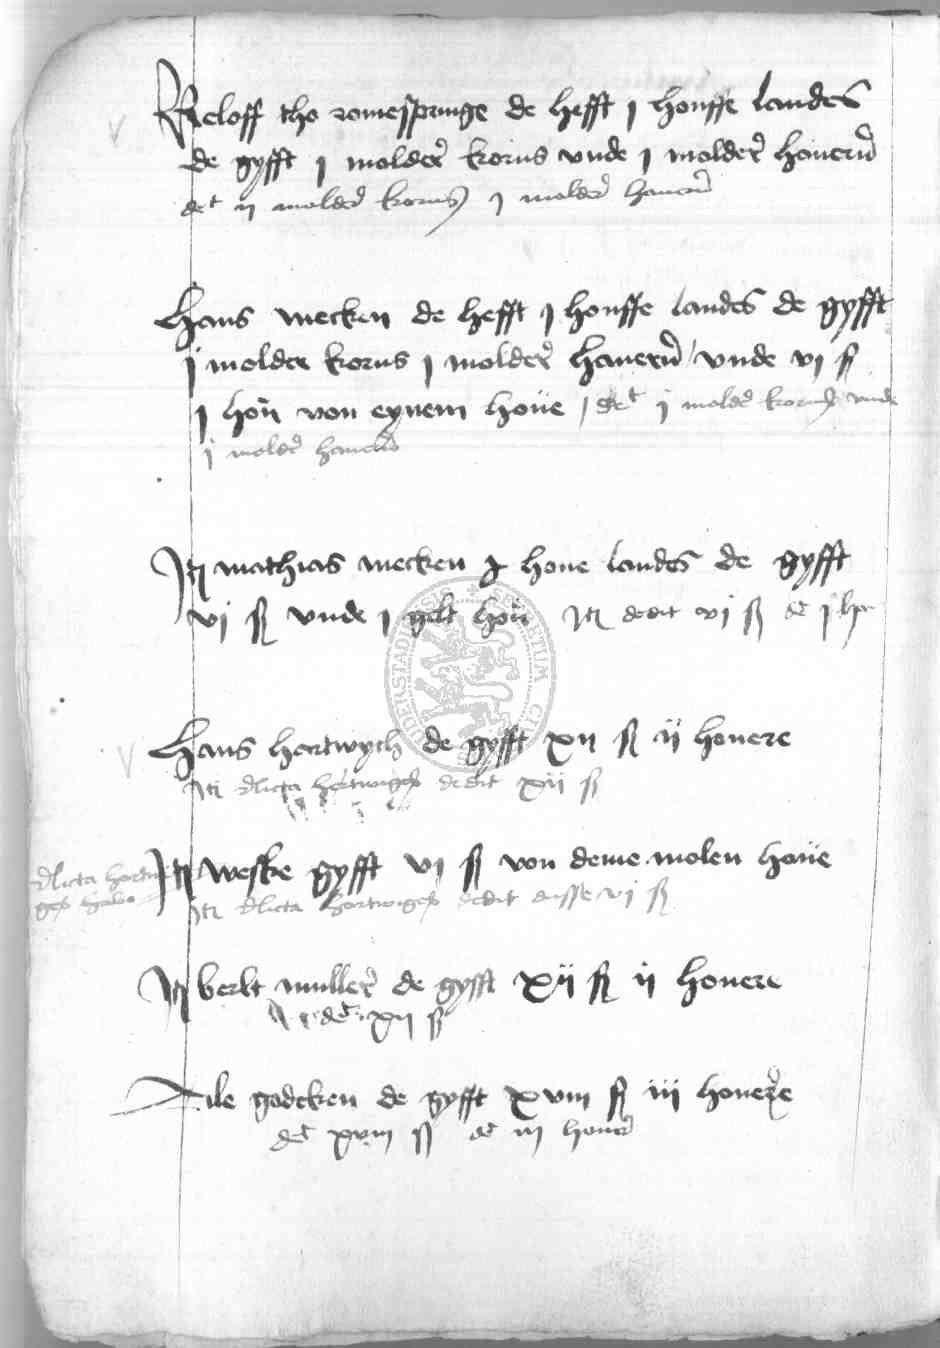 Roloff tho romespringe de hefft j houffe landes
de gyfft j molder korns vnde j molder hauern
det ij molder korns j molder hauern
Hans mecken de hefft j houffe landes de gyfft
j molder korns j molder hauern vnde vj ß
j hon von eynem houe / det j molder korns vnde
j molder hauern
Jtem mathias mecken j houe landes de gyfft
vj ß vnde j gelt hon Jtem dedit vj ß det j
Hans hartwych de gyfft xij ß ij honere
Jtem hartwiges dedit xij ß
Jtem weske gyfft vj ß von deme molen houe
Jtem hartwiges dedit dusse vj ß
Jtem berlt muller de gyfft xij ß ij honere
det xij ß
Tile godeken de gyfft xviij ß iij honere
det xviij ß det iij honer
DERSTADENSE SECRETUM CI